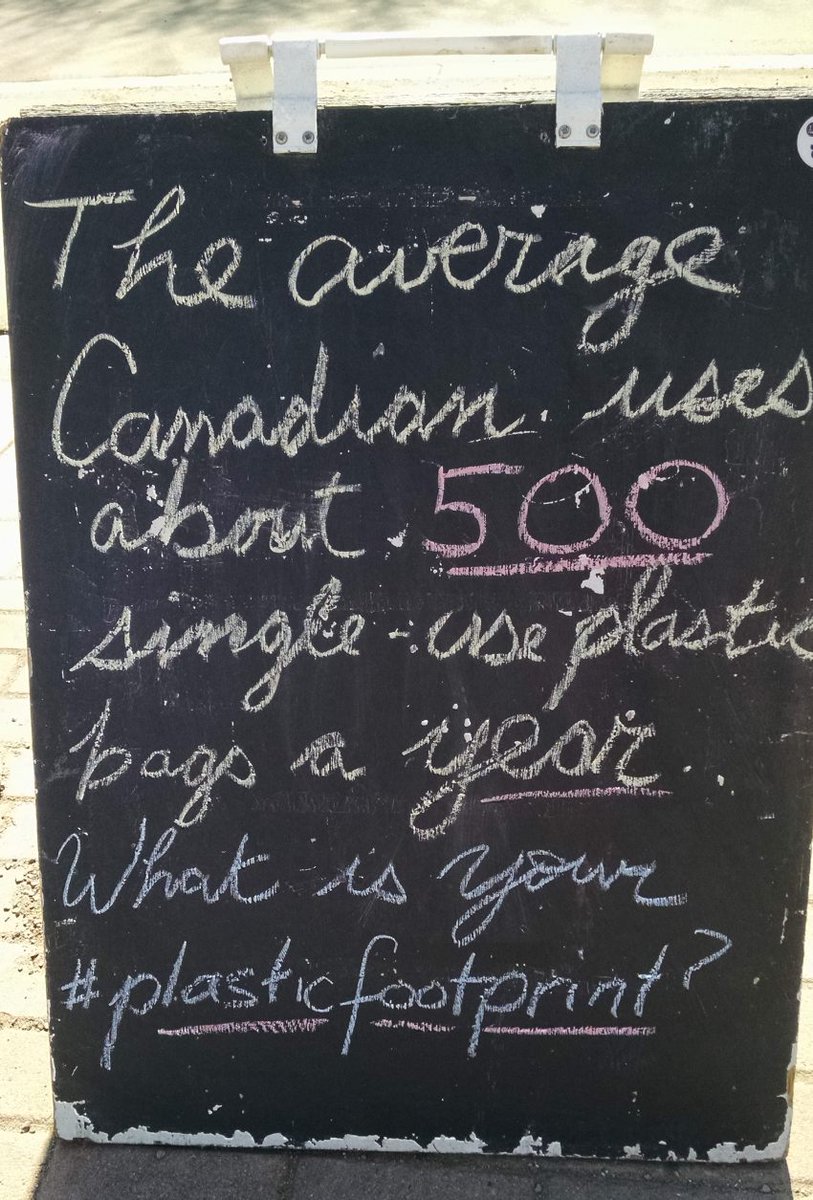 The average
Canadian uses
about 500
single-use plastic
bags a year..
What is your
#plasticfootprint?